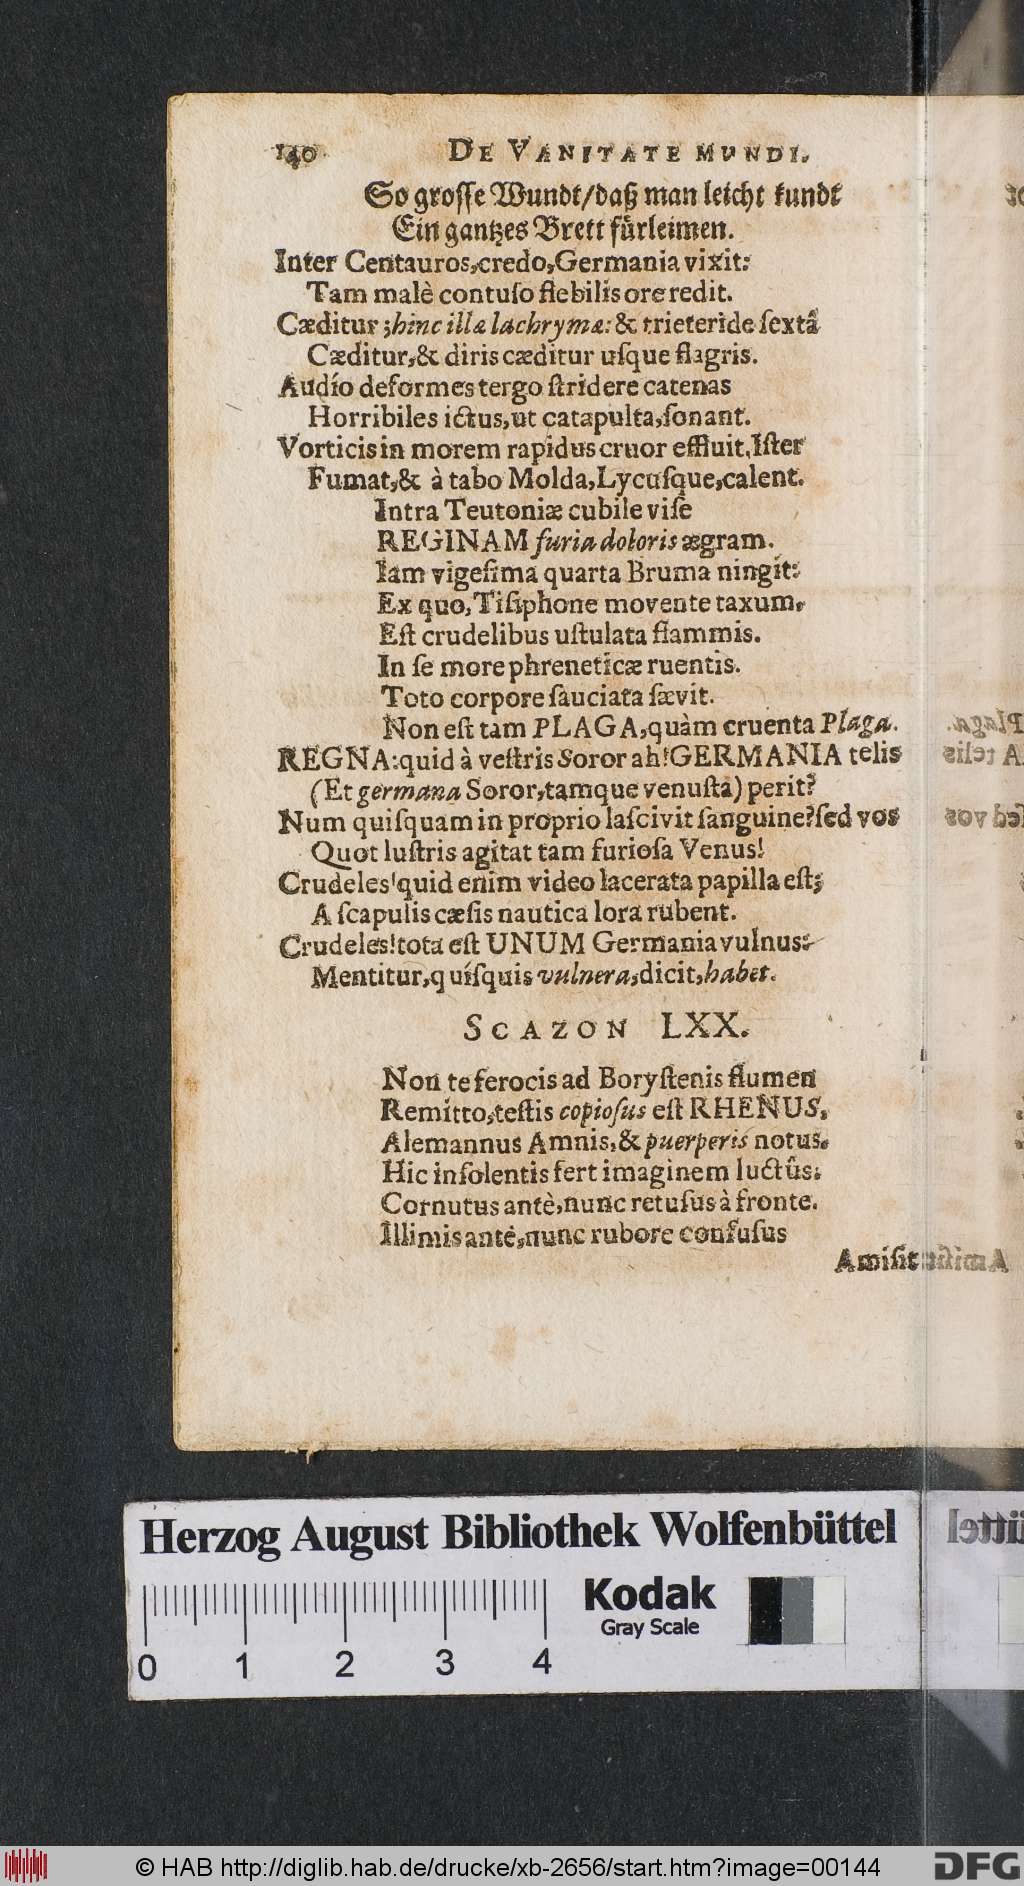 140 DE VANITATE MUNDI.
So groſſe Wundt/daß man leicht kundt
Ein gantzes Brett fürleimen.
Inter Centauros,credo,Germania vixit:
Tam malè contuſo flebilis ore redit.
Cæditur;hinc illæ lachrymæ:& trieteride ſextâ
Cæditur,& diris cæditur uſque flagris.
Audío deformes tergo ſtridere catenas
Horribiles ictus,ut catapulta,ſonant.
Vorticis in morem rapidus cruor effluit,Iſter
Fumat,& à tabo Molda,Lycuſque,calent.
Intra Teutoniæ cubile viſe
REGINAM furia doloris ægram.
Iam vigeſima quarta Bruma ningit:
Ex quo,Tiſiphone movente taxum,
Eſt crudelibus uſtulata flammis.
In ſe more phreneticæ ruentis.
Toto corpore ſauciata ſævit.
Non eſt tam PLAGA,quàm cruenta Plaga.
REGNA:quid à veſtris Soror ah!GERMANIA telis
(Et germana Soror,tamque venuſta) perit?
Num quiſquam in proprio laſcivit ſanguine?ſed vos
Quot luſtris agitat tam furioſa Venus!
Crudeles!quid enim video lacerata papilla eſt;
A ſcapulis cæſis nautica lora rubent.
Crudeles!tota eſt UNUM Germania vulnus:
Mentitur,quíſquis vulnera,dicit,habet.
SCAZON LXX.
Non te ferocis ad Boryſtenis flumen
Remitto,teſtis copioſus eſt RHENUS,
Alemannus Amnis,& puerperis notus.
Hic inſolentis fert imaginem luctûs.
Cornutus antè,nunc retuſus à fronte.
Illimis antè,nunc rubore confuſus
Amiſit
Herzog August Bibliothek Wolfenbüttel
Kodak
Gray Scale
0 1 2 3 4
© HAB http://diglib.hab.de/drucke/xb-2656/start.htm?image=00144
DFG